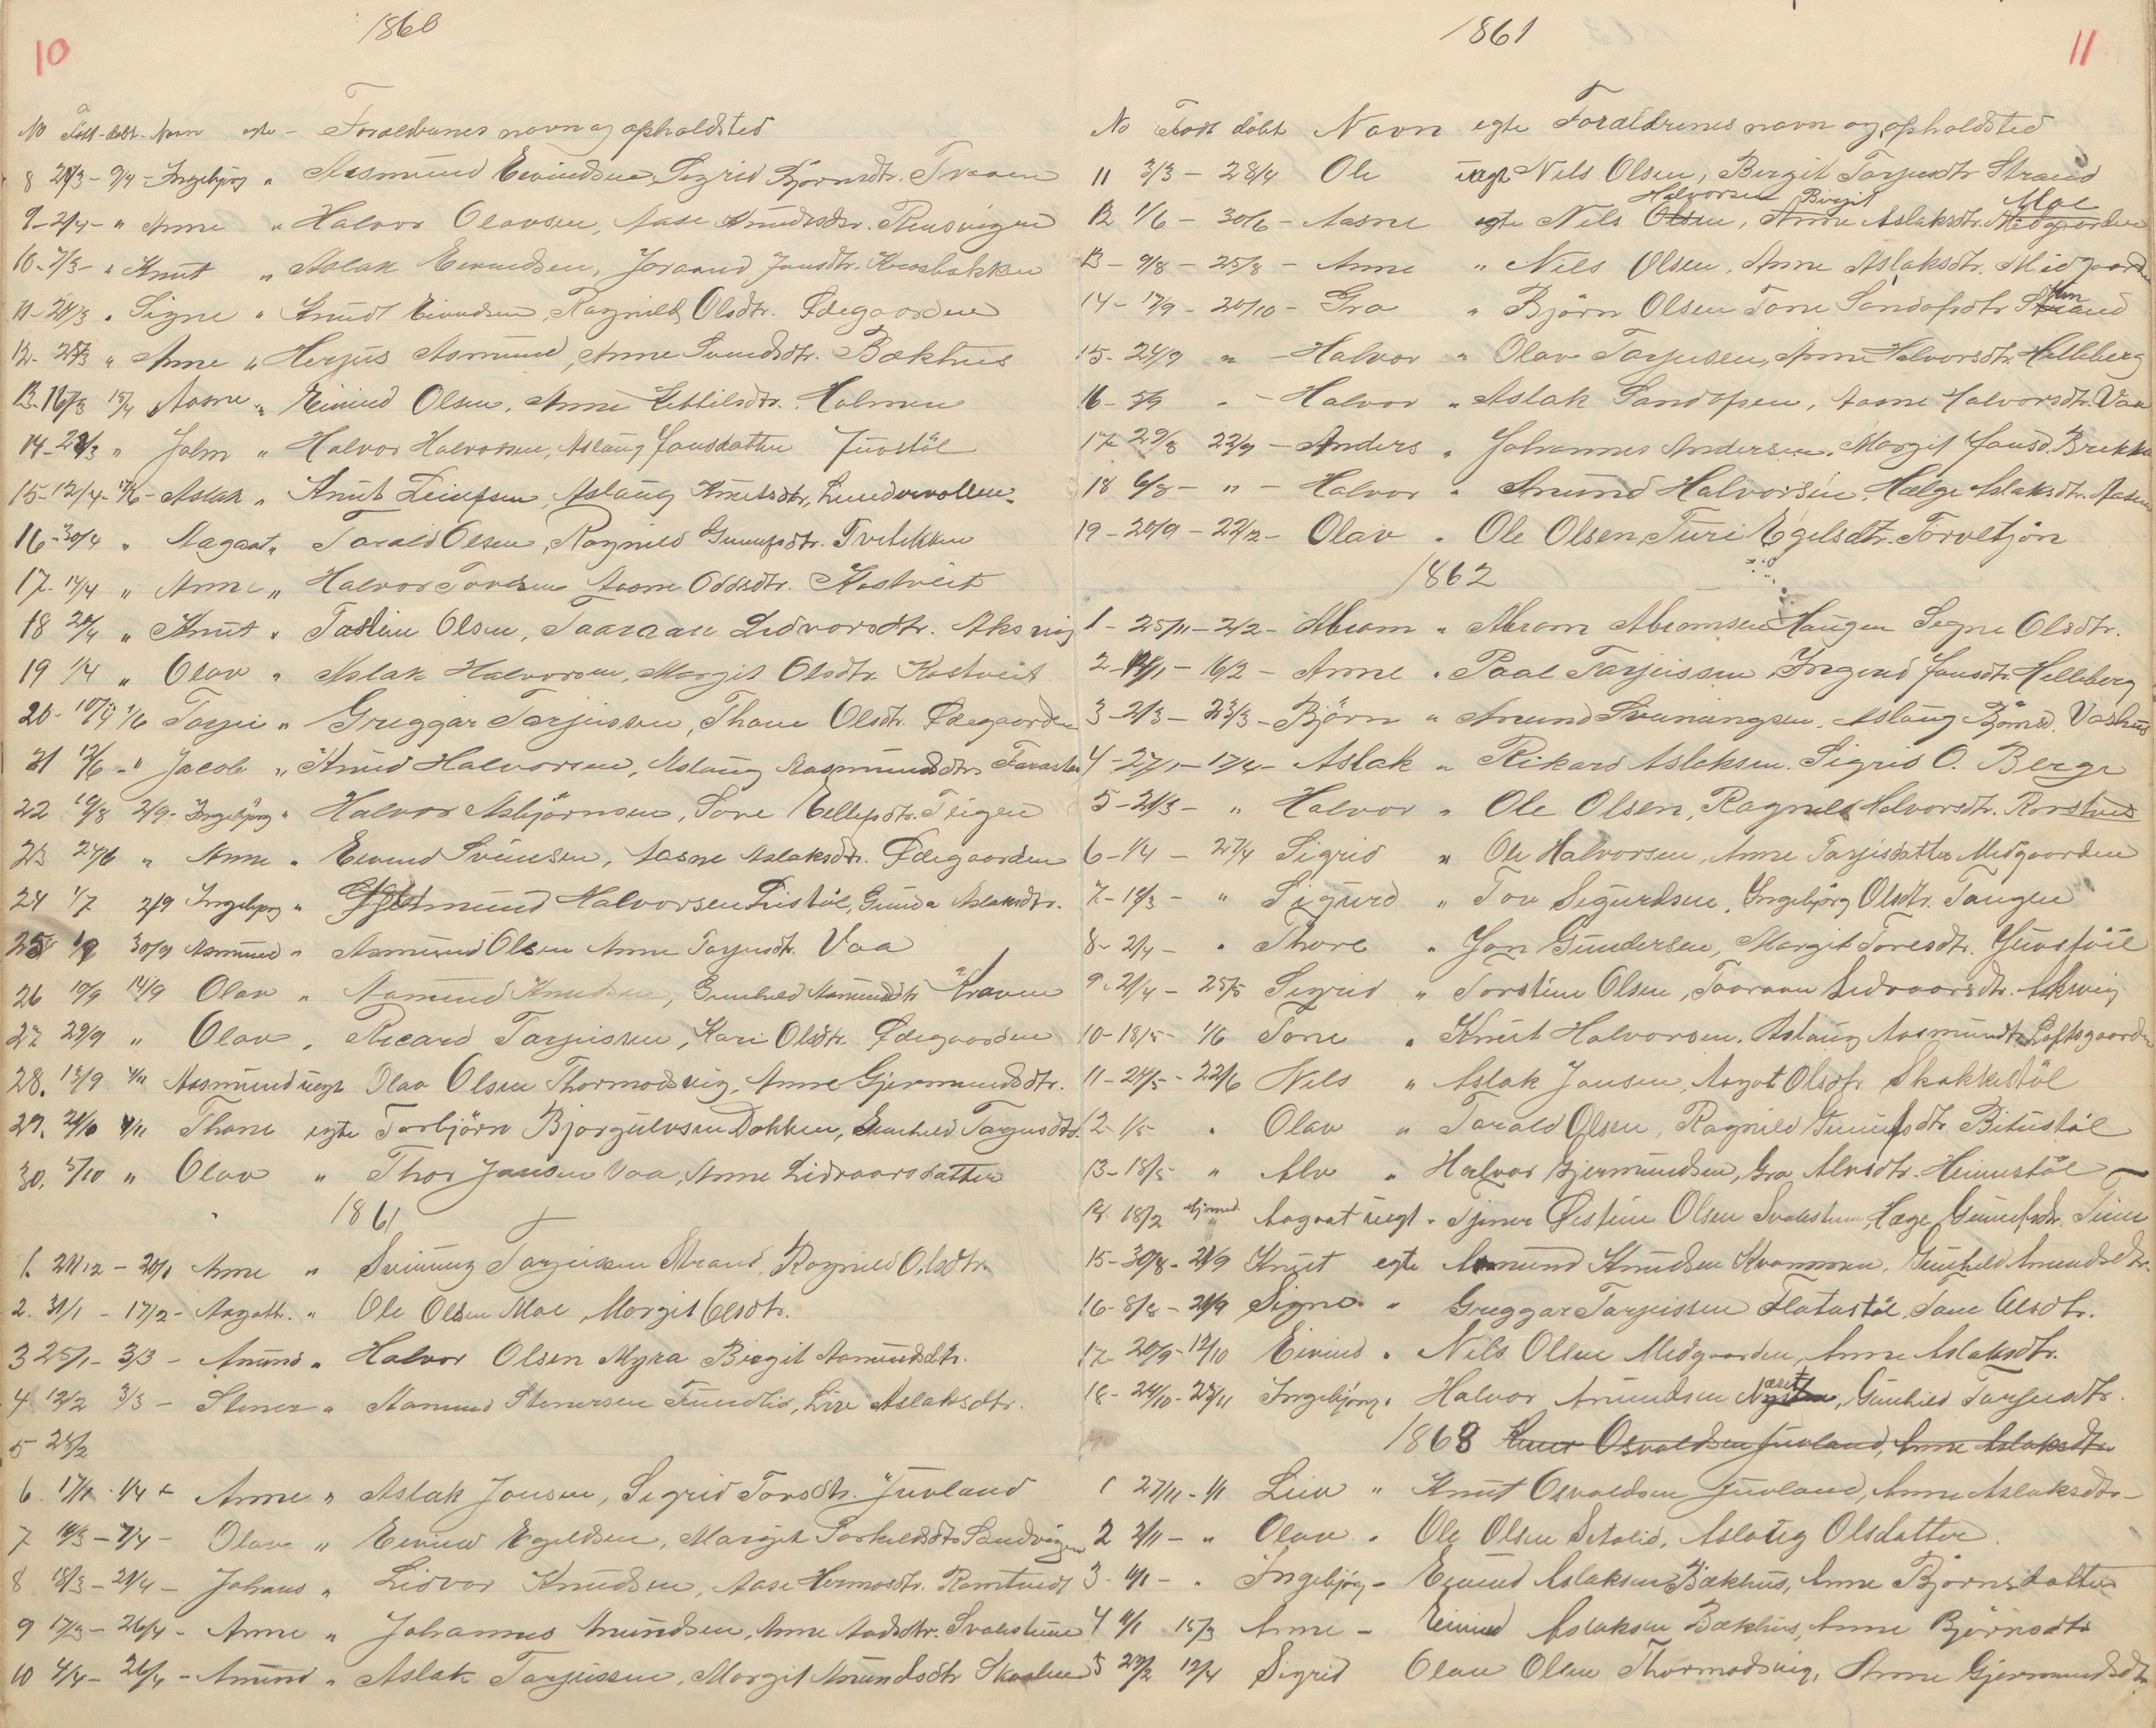 10
1860
No Född - döbt - Navn egte - Foraeldrenes navn og opholdsted
8 28/3 - 9/4 - Ingebjørg " Aasmund Eivindsen, Sigrid Björnsdtr. Tveien
9 - 2/4 - " Anne " Halvor Olavsen, Aase Knudsdtr.
10 - 7/3 - " Knut " Aslak Eivindsen, Joraand Jonsdtr. Krosbakken
11 - 24/3 " Signe " Knudt Eivindsen, Ragnild Olsdtr. Ødegaarden
12 - 25/3 " Anne " Herjus Asmund, Anne Svendsdtr. Bækhus
13. 16/3 15/4 Aasne " Eivind Olsen, Anne Kittilsdtr. Holmen
14 - 28/3 " John " Halvor Halvorsen, Aslaug Jonsdatter Juvstöl
15 - 12/4 - Aslak " Knut Leiufsen, Aslaug Knutsdtr, Lundevollen
16 - 30/4 " Aagaat " Tarald Olsen, Ragnild Gunufsdtr. Tveitekken
17. 14/4 " Anne " Halvor Tovsen Aasne Oddsdtr. Kostveit
18 20/4 " Knut " Tostein Olsen, Taaraan Lidvorsdtr. Aksvig
19 1/4 " Olav " Aslak Halvorsen, Margit Olsdtr. Kostveit
20 - 10/4 1/6 Tarjei " Greggar Tarjeissen, Thone Olsdtr. Ødegaarden
21 12/6 - " Jacob " Knud Halvorsen, Aslaug Aasmundsdtr.
22 10/8 2/9 - Ingebjörg " Halvor Asbjörnsen, Tone Ellefsdtr. Teigen
23 24/6 " Anne " Eivind Sveinsen, Aasne Aslaksdtr. Ødegaarden
24 1/7 2/9 Ingebjørg " Gjermund Halvorsen Listöl, Gunda Aslaksdtr.
25 1/9 30/9 Asmund " Asmund Olsen Anne Tarjusdtr. Vaa
26 10/9 14/9 Olav " Aamund Knudsen, Gunhild Aamundsdtr Kraven
27 29/9 " Olav " Ricard Tarjeissen, Kari Olsdtr. Ødegaarden
28. 13/9 4/11 Aasmund uegt Olav Olsen Thormodsvig, Anne Gjermundsdtr.
29. 21/10 4/11 Thone egte Torbjörn Bjorgulvsen Dokken, Gunhild Tarjusdtr.
30. 5/10 " Olav " Thor Jansen Vaa, Anne Lidvaarsdatter
1861
1. 21/12 - 20/1 Anne " Sveinung Tarjeissen Strand, Ragnild Olsdtr.
2. 31/1 - 17/2 - Aagath. " Ole Olsen Moe, Margit Olsdtr.
3 25/1 - 3/3 - Anund " Halvor Olsen Myra Birgit Aamundsdtr.
4 12/2 3/3 - Stener " Aamund Stenersen Fundlid, Liv Aslaksdtr.
5 28/2
6. 17/1 - 1/4 - Anne " Aslak Jonsen, Sigrid Torsdtr. Juvland
7 10/3 - 7/4 - Olav " Eivind Egildsen, Margit Torkeldsdtr. Sandvigen
8 18/3 - 21/4 - Johans " Lidvor Knudsen, Aase Hermosdtr. Romtvedt
9 17/3 - 26/4 - Anne " Johannes Anundsen, Anne Aadsdtr. Svalestuen
10 4/4 - 26/4 - Anund " Aslak Tarjeissen, Margit Anundsdtr
11
1861
No Född döbt Navn egte Forældrenes navn og opholdsted
11 3/3 - 28/4 Ole uegt Nils Olsen, Bergit Tarjusdtr Strand
Halvorsen Birgit Moe
12 1/6 - 30/6 - Aasne egte Nils Olsen, Anne Aslaksdtr. Midgaarden
13 - 9/8 - 25/8 - Anne " Nils Olsen, Anne Aslaksdtr. Midgaarden
14 - 17/9 - 20/10 - Gro " Björn Olsen Tone Sandofsdtr Strand
15 - 24/9 " - Halvor " Olav Tarjusen, Anne Halvorsdtr. Helleberg
16 - 5/9 " - Halvor " Aslak Sandofsen, Aasne Halvorsdtr. Vaa
17 - 29/8 22/9 - Anders " Johannes Andersen, Margit Jonsd. Brekke
18 6/8 - " - Halvor " Anund Halvorsen, Hælge Aslaksdtr.
19 - 20/9 - 22/12 - Olav " Ole Olsen, Turi Egilsdtr. Torvetjön
1862
1 - 25/11 - 2/2 - Abrom " Abrom Abromsen Haugen Segne Olsdtr.
2 - 12/1 - 16/2 - Anne " Paal Tarjeissen Ingerid Jonsdtr. Helleberg
3 - 2/3 - 23/3 - Björn " Anund Sveinungsen, Aslaug Björnsd. Vashus
4 - 27/1 - 17/4 - Aslak " Rikard Aslaksen. Sigrid O. Berge
5 - 21/3 - " Halvor " Ole Olsen, Ragnild Halvorsdtr.
6 - 1/4 - 27/4 Sigrid " Ole Halvorsen, Anne Tarjeisdatter Midgaarden
7 - 18/3 - " Sigurd " Tov Sigurdsen, Ingebjörg Olsdtr. Taugen
8 - 2/4 - " Thore " Jon Gundersen, Margit Toresdtr. Juvstöl
9 - 21/4 - 25/5 Sigrid " Torstein Olsen, Taaraan Lidvaarsdtr. Aksvig
10 - 18/5 - 1/6 Tone " Knut Halvorsen, Aslaug Aasmundsdtr. Loftsgaarden
11 - 24/5 - 22/6 Nils " Aslak Jansen, Aagot Olsdtr Skakkestöl
12 - 1/5 " Olav " Tarald Olsen, Ragnild Gunufsdtr. Bitustöl
13 - 18/5 " Alv " Halvor Gjermundsen, Gro Alvsdtr. Heimestöl
14. 18/2 hjemmed. Aagaat uegt - Tjener Øistein Olsen Svalestuen, Hæge Gunufsdtr. Tuen
15 - 30/8 - 21/9 Knut egte Amund Knudsen Kvammen, Gunhild Amundsdtr.
16 - 8/8 - 21/9 Signe " Greggar Tarjeissen Flatastöl, Tone Olsdtr.
17 - 20/9 - 12/10 Eivind " Nils Olsen Midgaarden, Anne Aslaksdtr.
18 - 24/10 - 23/11 Ingebjörg " Halvor Anundsen, Gunhild Tarjusdtr.
1863 Knut Osvaldsen Juvland, Anne Aslaksdtr.
1 27/11 - 1/1 Liv " Knut Osvaldsen Juvland, Anne Aslaksdtr -
2 2/11 - " Olav " Ole Olsen Setalid, Aslaug Olsdatter
3 - 4/1 - " Ingebjörg - Eivind Aslaksen Bækhus, Anne Björnsdatter
4 4/1 15/3 Anne - Eivind Aslaksen Bækhus, Anne Björnsdtr
5 22/2 12/4 Sigrid Olav Olsen Thormodsvig, Anne Gjermundsdtr.